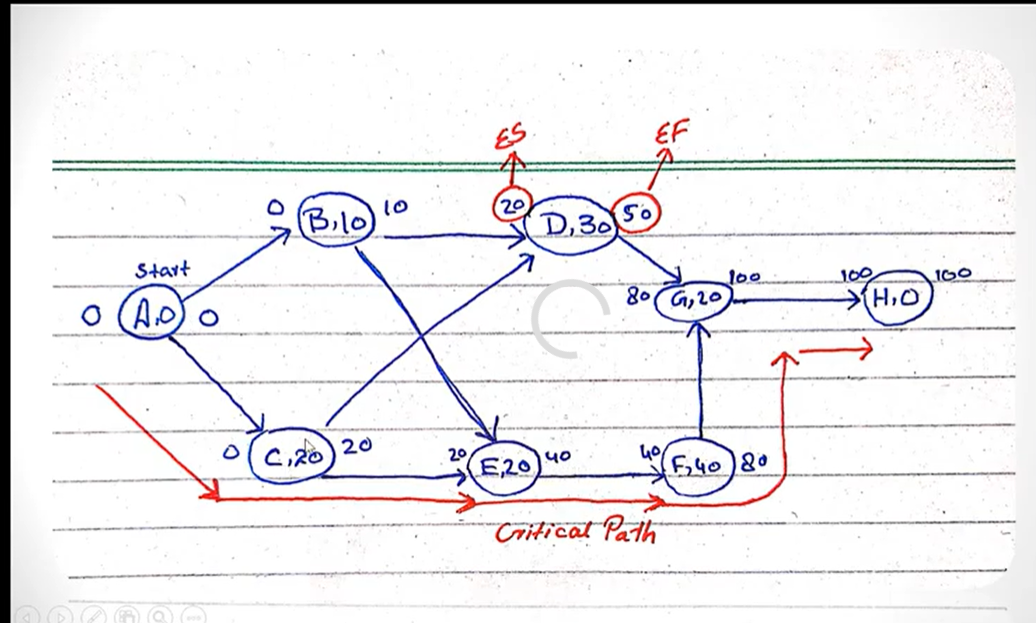 ES EF
0 B,10 10 20 D,30 50
Start
0 A,0 0
80 G,20 100 100 H,0 100
0 C,20 20 20 E,20 40 40 F,40 80
Critical Path